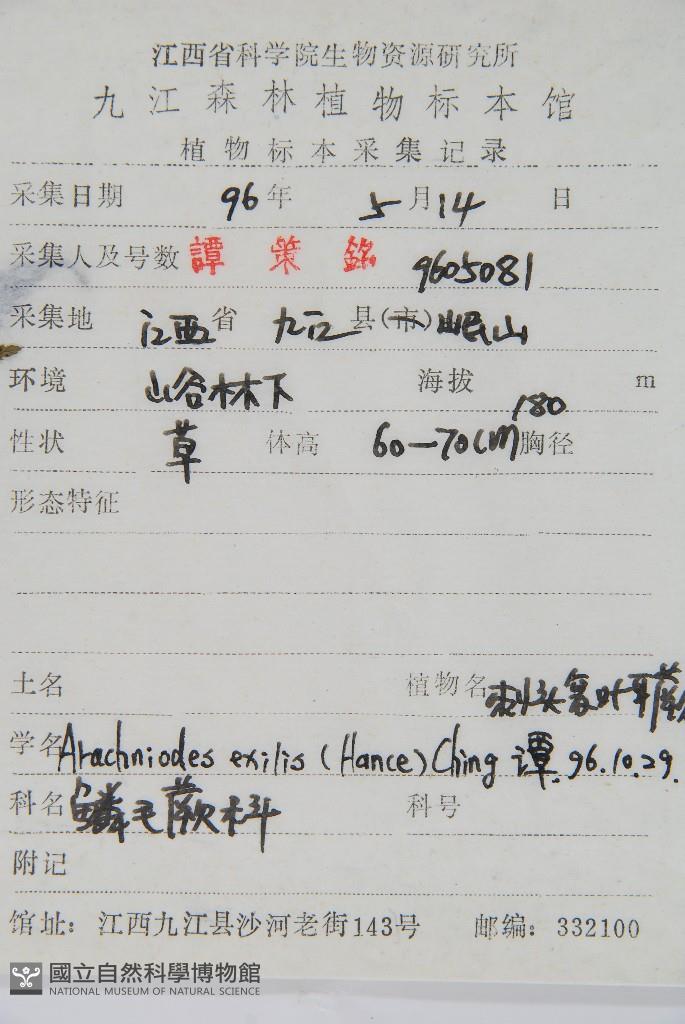 江西省科学院生物资源研究所
九江森林植物标本馆
植物标本采集记录
采集日期 96年 5月14日
采集人及号数 譚策銘 9605081
采集地 江西省 九江县(市)岷山
环境 山谷林下 海拔 180 m
性状 草 体高 60—70cm 胸径
形态特征
土名 植物名 刺头复叶耳蕨
学名 Arachniodes exilis (Hance) Ching 谭.96.10.29.
科名 鳞毛蕨科 科号
附记
馆址: 江西九江县沙河老街143号 邮编: 332100
國立自然科學博物館
NATIONAL MUSEUM OF NATURAL SCIENCE